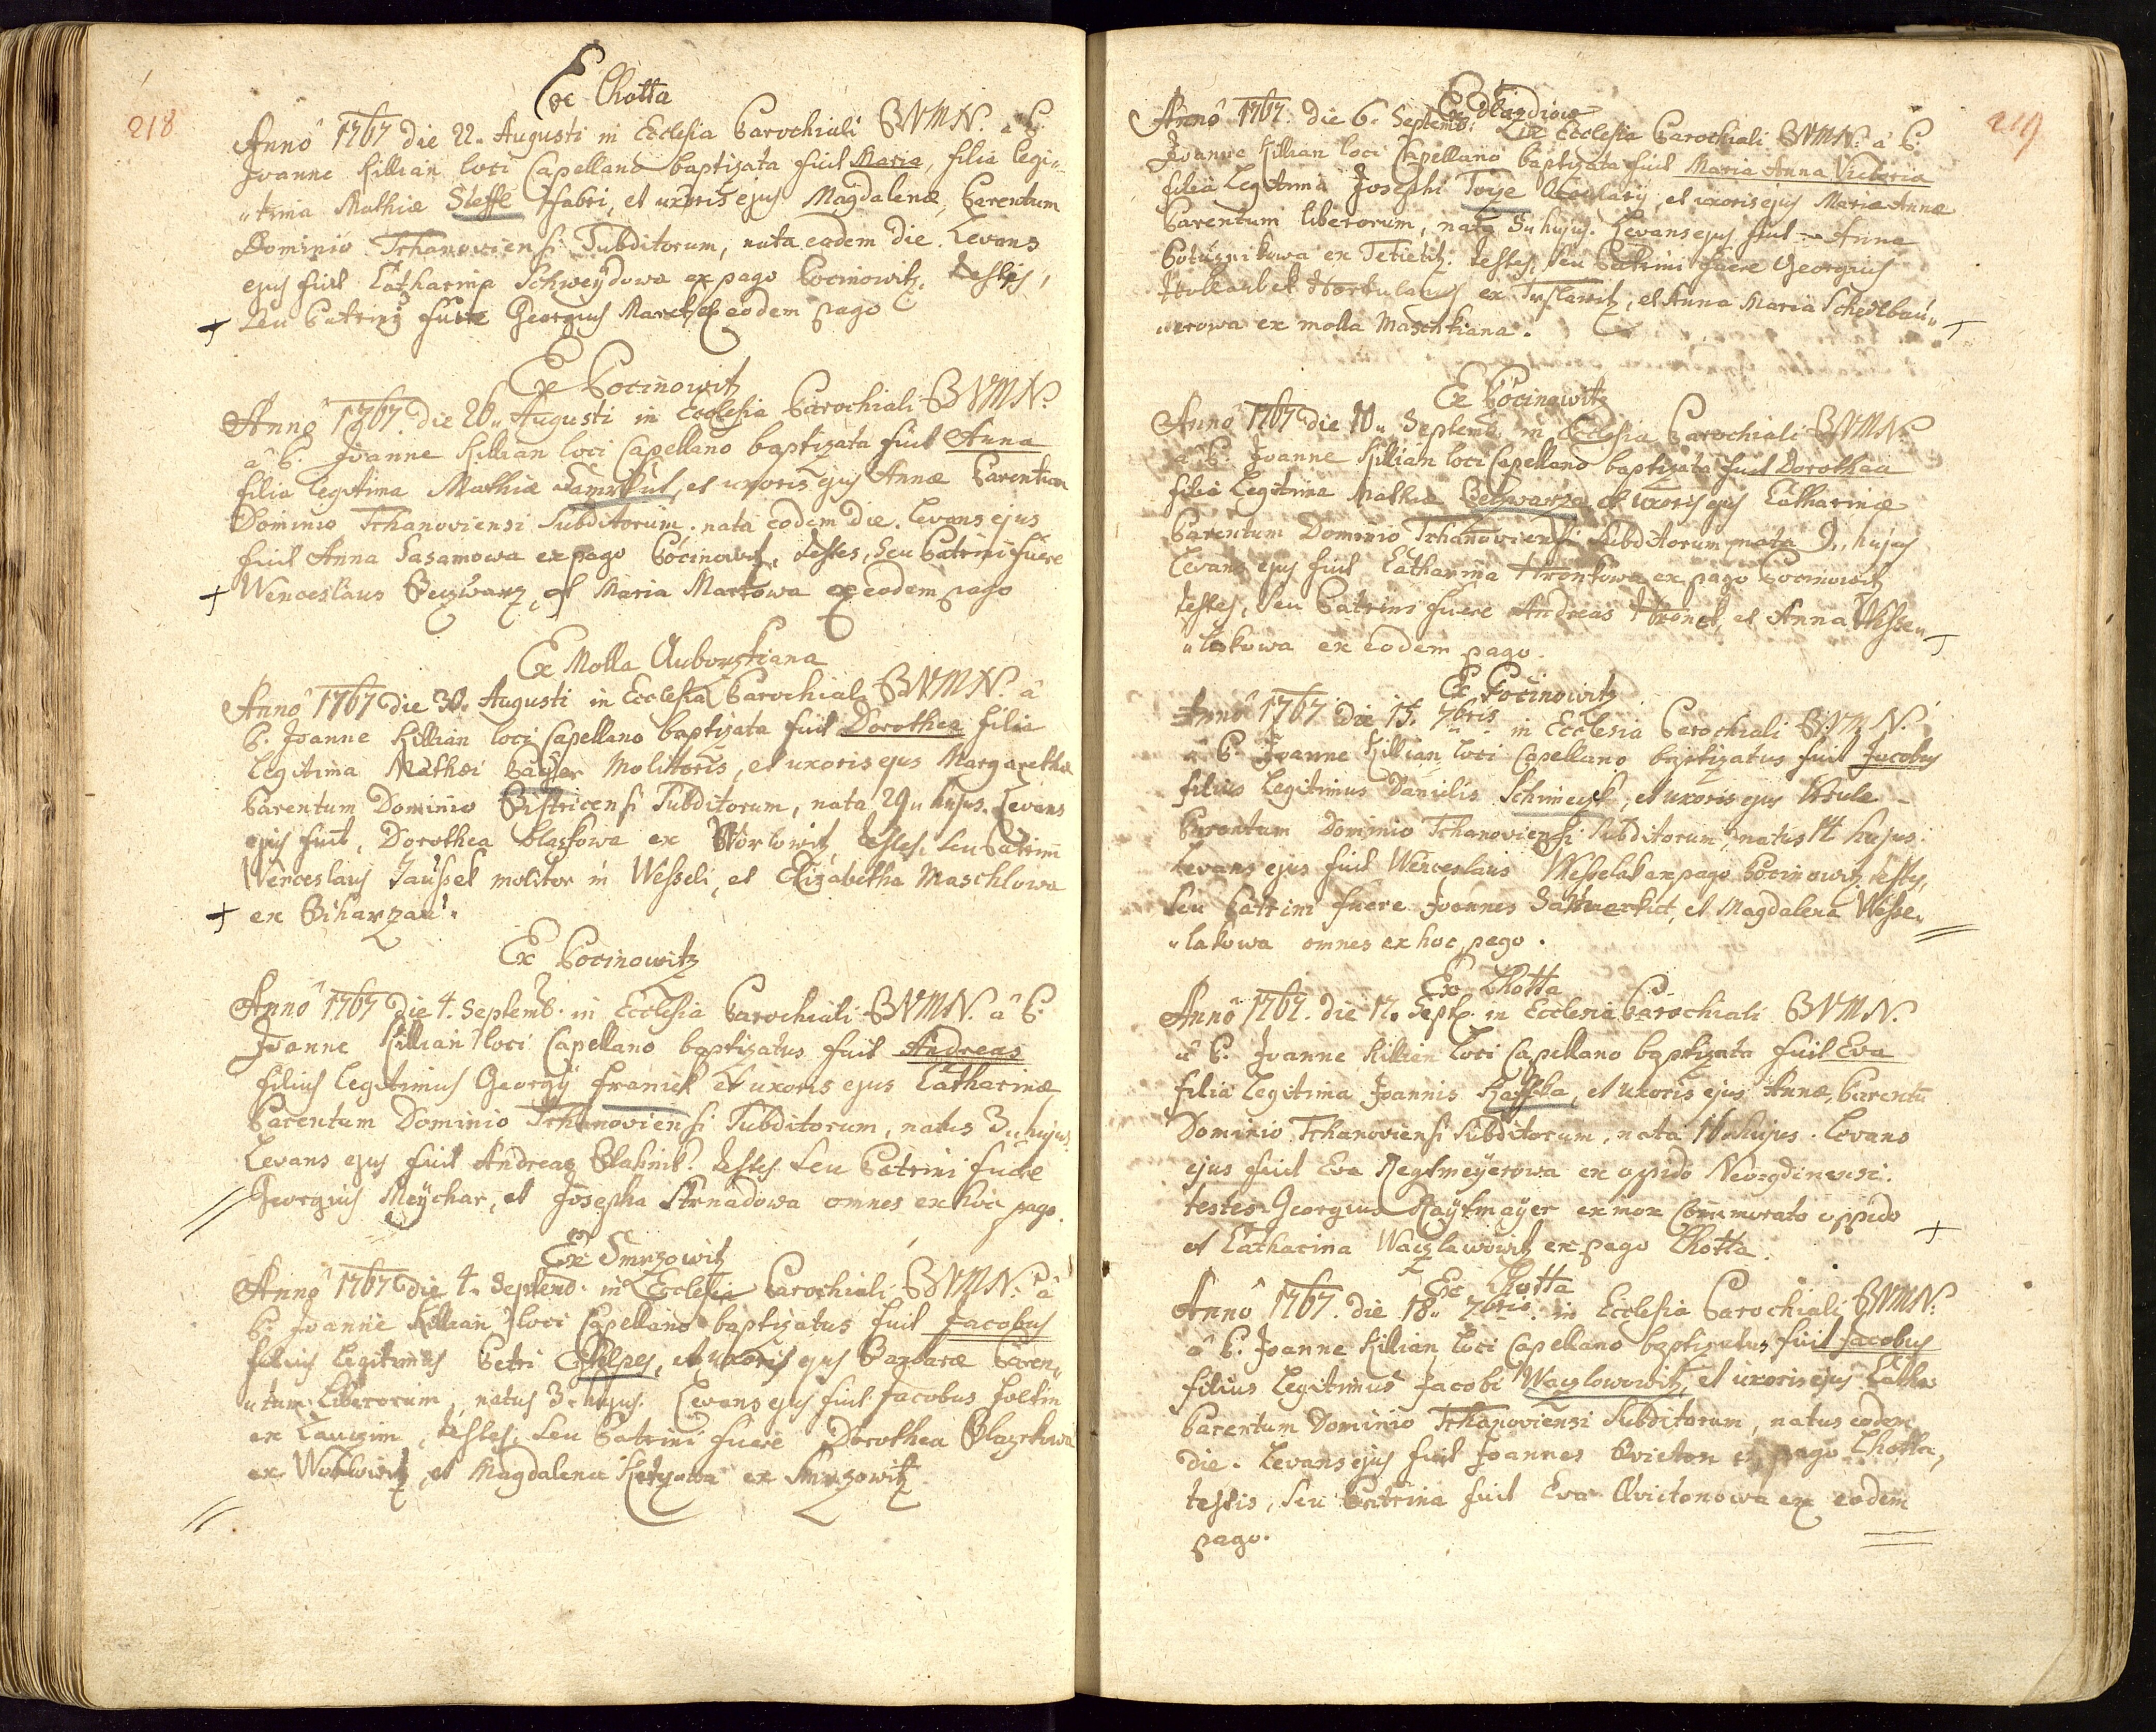 218
Ex Lhotta
Anno 1767 die 22. Augusti in Ecclesia Parochiali BVMN. â P.
Joanne Killian loci Capellano baptizata fuit Maria, filia legi„
„tima Mathiæ Steffl Fabri, et uxoris ejus Magdalenæ, Parentum
Dominio Tchanoviensi Subditorum, nata eodem die. Levans
ejus fuit Catharina Schweÿdowa ex pago Pocinowitz. testes,
seu Patrini fuere Georgius ex eodem pago
Ex Pocinowitz
Anno 1767. die 26„ Augusti in Ecclesia Parochiali BVMN.
â P. Joanne Killian loci Capellano baptizata fuit Anna
filia legitima Mathiæ et uxoris ejus Annæ Parentum
Dominio Tchanoviensi Subditorum. nata eodem die. Levans ejus
fuit Anna Sasamowa ex pago Pocinowitz, testes, seu Patrini fuere
Wenceslaus et Maria Martowa ex eodem pago
Ex Molla Auborzkiana
Anno 1767 die 30. Augusti in Ecclesia Parochiali BVMN. â
P. Joanne Killian loci Capellano baptizata fuit Dorothea filia
legitima Mathæi Molitoris, et uxoris ejus Margaretha
Parentum Dominio Bistricensi Subditorum, nata 29„ hujus. Levans
ejus fuit, Dorothea ex testes, seu Patrini
Wenceslaus Jaussek molitor in Wesseli, et Elizabetha Maschlowa
ex
Ex Pocinowitz
Anno 1767 die 4. Septemb. in Ecclesia Parochiali BVMN. â P.
Joanne Killian loci Capellano baptizatus fuit Andreas
filius legitimus Georgÿ Franiek et uxoris ejus Catharinæ
Parentum Dominio Tchanoviensi Subditorum, natus 3„ hujus.
Levans ejus fuit Andreas testes seu Patrini fuere
Georgius Meÿchar, et Josepha Strnadowa omnes ex hoc pago.
Ex Smrzowitz
Anno 1767 die 4. Septemb. in Ecclesia Parochiali BVMN. â
P. Joanne Killian loci Capellano baptizatus fuit Jacobus
filius legitimus Petri et uxoris ejus Barbaræ Paren„
„tum Liberorum, natus 3. hujus. Levans ejus fuit Jacobus
ex testes, seu Patrini fuere Dorothea
ex et Magdalena ex Smrzowitz
219
Ex
Anno 1767. die 6. Septemb. in Ecclesia Parochiali BVMN. â P.
Joanne Killian loci Capellano baptizata fuit Maria Anna Victoria
filia legitima Josephi et uxoris ejus Mariæ Annæ
Parentum liberorum, nata 5„ hujus. Levans ejus fuit Anna
ex testes, seu Patrini fuere Georgius
ex et Anna Maria Schedlbau„
„erowa ex molla Maschkiana.
Ex Pocinowitz
Anno 1767 die 10„ Septemb. in Ecclesia Parochiali BVMN.
â P. Joanne Killian loci Capellano baptizata fuit Dorothea
filia legitima Mathiæ et uxoris ejus Catharinæ
Parentum Dominio Tchanoviensi Subditorum nata 9„ hujus
Levans ejus fuit Catharina Hronkowa ex pago Pocinowitz
testes, seu Patrini fuere Andreas Hronek, et Anna Wesse„
„lakowa ex eodem pago.
Ex Pocinowitz
Anno 1767 die 15. 7bris in Ecclesia Parochiali B.V.M.N.
â P. Joanne Killian loci Capellano baptizatus fuit Jacobus
filius legitimus Danielis et uxoris ejus
Parentum Dominio Tchanoviensi Subditorum, natus 14 hujus.
Levans ejus fuit Wenceslaus Wesselak ex pago Pocinowitz testes,
seu Patrini fuere Joannes et Magdalena Wesse„
„lakowa omnes ex hoc pago.
Ex Lhotta
Anno 1767. die 17. Sept. in Ecclesia Parochiali BVMN.
â P. Joanne Killian loci Capellano baptizata fuit Eva
filia legitima Joannis et uxoris ejus Annæ, Parentū
Dominio Tchanoviensi Subditorum, nata 16. hujus. Levans
ejus fuit Eva Regtmeÿerowa ex oppido
testes Georgius Raÿtmaÿer ex mox commemorato oppido
et Catharina Waczlawowitz ex pago Lhotta.
Ex Lhotta
Anno 1767. die 18„ 7bris in Ecclesia Parochiali BVMN.
â P. Joanne Killian loci Capellano baptizatus fuit Jacobus
filius legitimus Jacobi Waczlowowitz, et uxoris ejus Catha.
Parentum Dominio Tchanoviensi Subditorum, natus eodem
die. Levans ejus fuit Joannes Qvicton ex pago Lhotta,
testis, seu Patrina fuit Eva Qvictonowa ex eodem
pago.